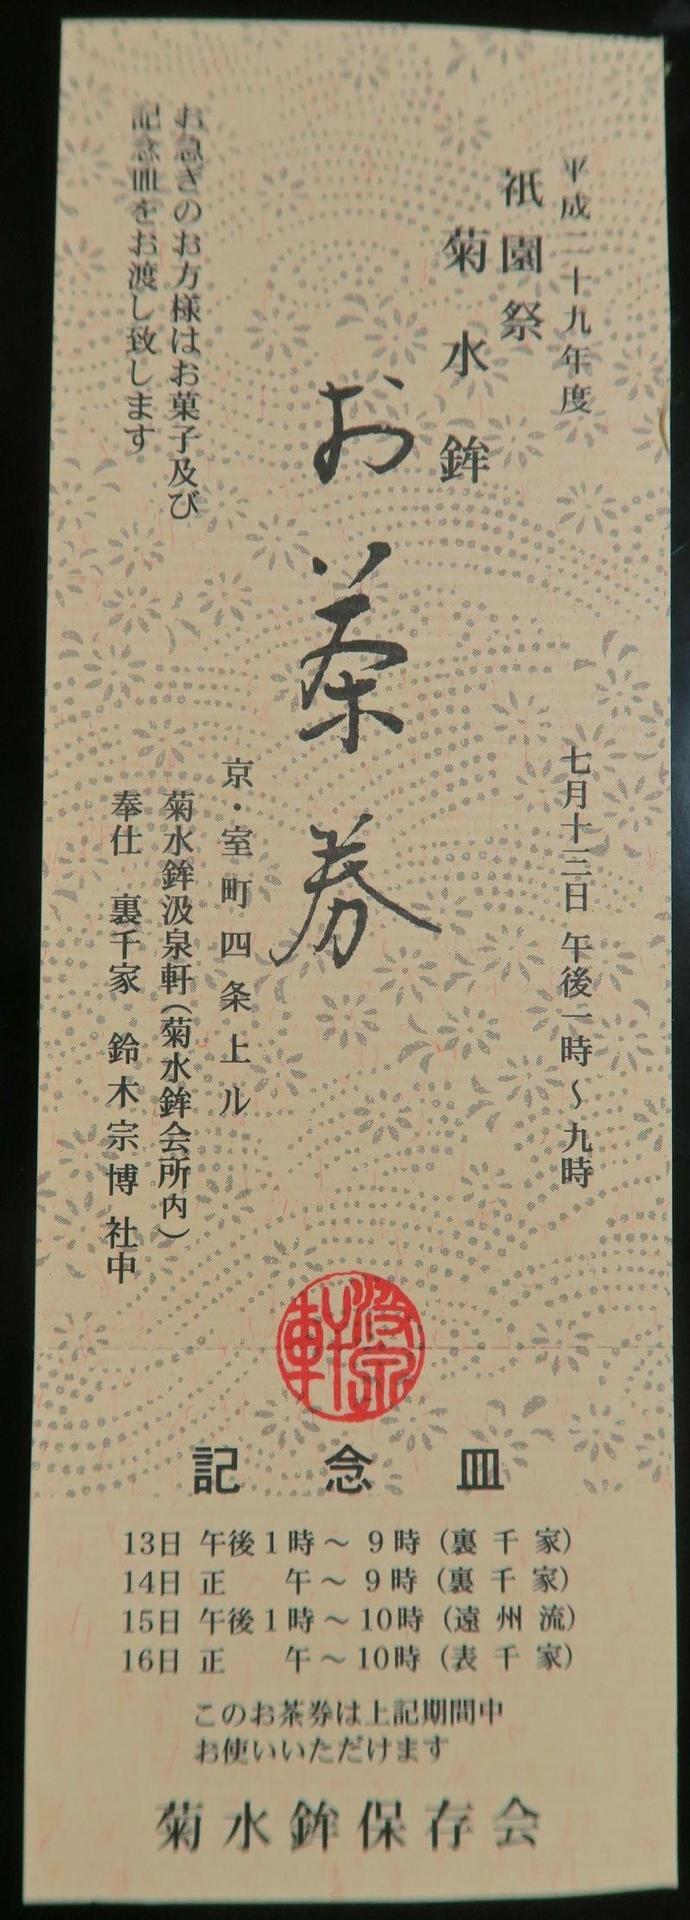 平成二十九年度
七月十三日 午後一時～九時
祇園祭
菊水鉾
お茶券
京・室町四条上ル
菊水鉾汲泉軒（菊水鉾会所内）
奉仕 裏千家 鈴木宗博社中
お急ぎのお方様はお菓子及び
記念皿をお渡し致します
汲泉軒
記念皿
13日 午後1時～9時（裏千家）
14日 正午～9時（裏千家）
15日 午後1時～10時（遠州流）
16日 正午～10時（表千家）
このお茶券は上記期間中
お使いいただけます
菊水鉾保存会